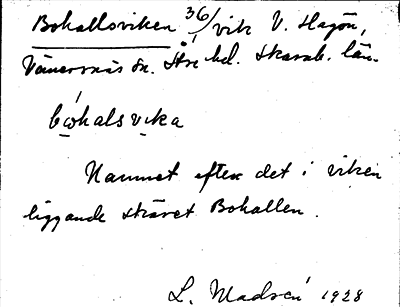 Bohallsviken 36/vik V. Hagön,
Vänersnäs sn. Åse hd. Skarab. län.
bωhals vika
Namnet efter det i viken
liggande skäret Bohallen.
L. Madsen 1928